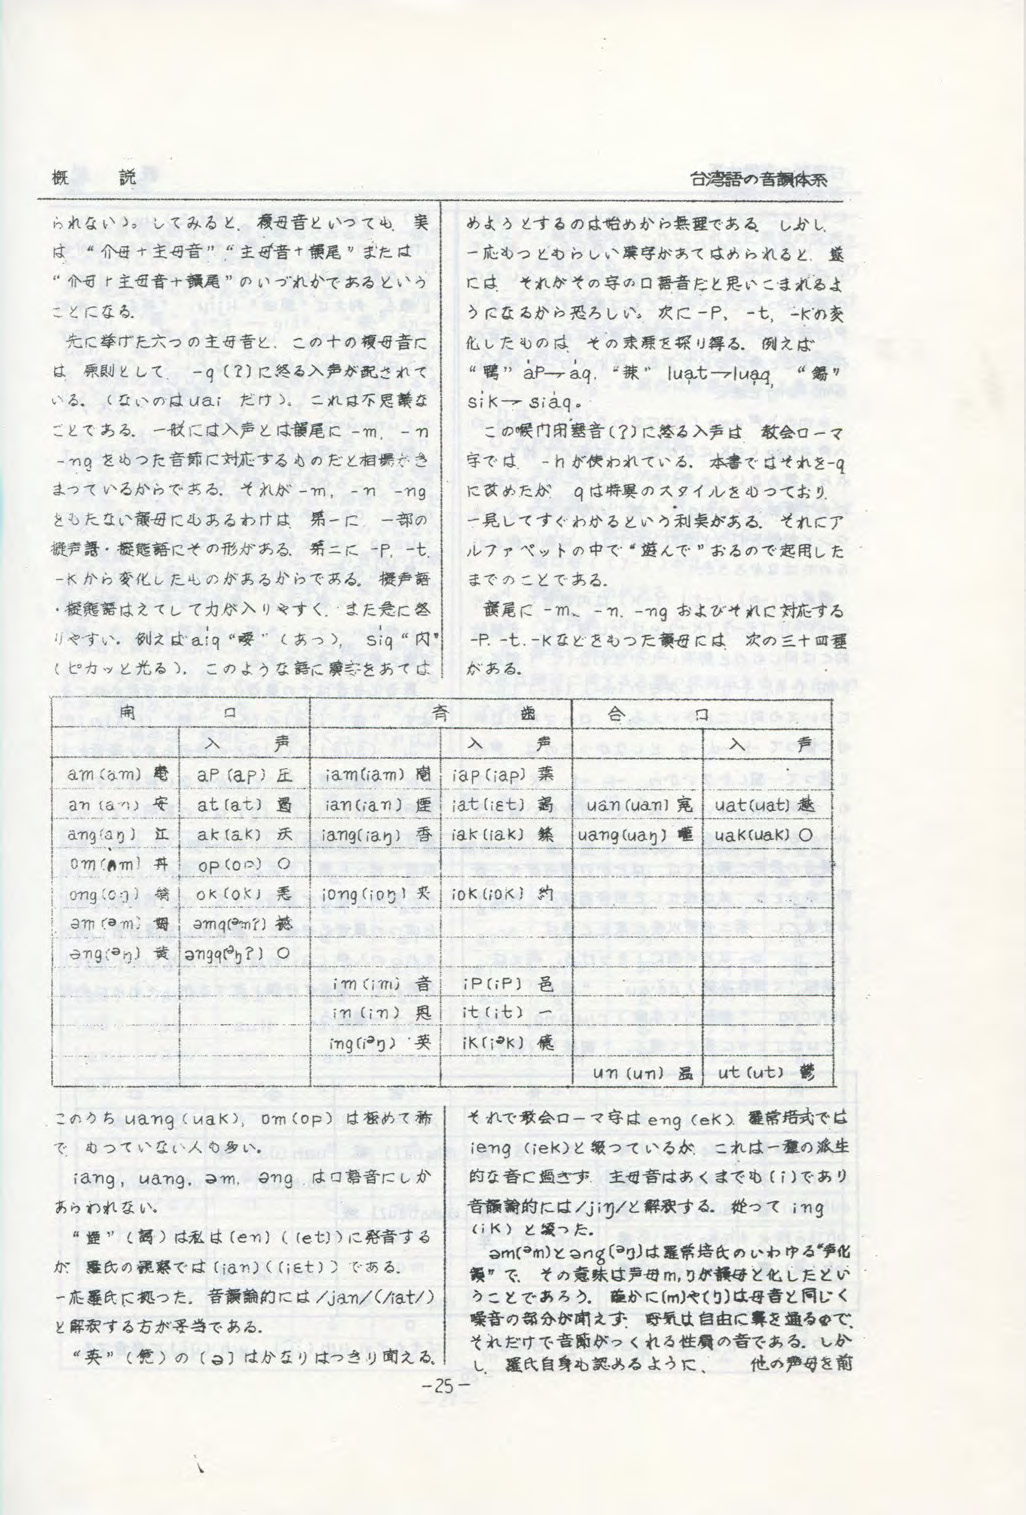 概　説
台湾語の音韻体系
られない)。してみると、複母音といつても、実
は、“介母＋主母音”“主母音＋韻尾”または
“介母＋主母音＋韻尾”のいづれかであるという
ことになる。
先に挙げた六つの主母音と、この十の複母音に
は、原則として、-q(?)に終る入声が配されて
いる。(ないのはuaiだけ)。これは不思議な
ことである。一般には入声とは韻尾に-m、-n
-ngをもつた音節に対応するものだと相場がき
まつているからである。それが-m、-n -ng
をもたない韻母にもあるわけは、第一に、一部の
擬声語・擬態語にその形がある。第二に-p、-t、
-kから変化したものがあるからである。擬声語
・擬態語はえてして力が入りやすく、また急に終
りやすい。例えばaiq“嗳”(あっ)、siq“闪”
(ピカッと光る)。このような語に漢字をあては
めようとするのは始めから無理である。しかし、
一応もつともらしい漢字があてはめられると、遂
には、それがその字の口語音だと思いこまれるよ
うになるから恐ろしい。次に-p、-t、-kの変
化したものは、その来源を探り得る。例えば
“鴨”ap→aq、“辣”luat→luaq、“錫”
sik→siaq。
この喉門閉塞音(?)に終る入声は、教会ローマ
字では、-hが使われている。本書ではそれを-q
に改めたが、qは特異のスタイルをもつており、
一見してすぐわかるという利点がある。それにア
ルファベットの中で“遊んで”おるので起用した
までのことである。
韻尾に-m、-n、-ngおよびそれに対応する
-p、-t、-kなどをもつた韻母には、次の三十四種
がある。
開　口　斉　歯　合　口
入　声　入　声　入　声
am(am) 庵　ap(ap) 圧　iam(iam) 閹　iap(iap) 葉
an(an) 安　at(at) 遏　ian(ian) 煙　iat(iɛt) 謁　uan(uan) 寃　uat(uat) 越
ang(aŋ) 江　ak(ak) 沃　iang(iaŋ) 香　iak(iak)　uang(uaŋ)　uak(uak) 〇
om(ɔm) 丼　op(op) 〇
ong(oŋ) 翁　ok(ok) 悪　iong(ioŋ) 央　iok(iok) 約
əm(əm) 姆　əmq(əm?)
əng(əŋ) 黄　əngq(əŋ?) 〇
im(im) 音　ip(ip) 邑
in(in) 恩　it(it) 一
ing(iəŋ) 英　ik(iək) 億
un(un) 温　ut(ut) 鬱
このうちuang(uak)、om(op)は極めて稀
で、もっていない人も多い。
iang、uang、əm、əng はロ語音にしか
あらわれない。
“煙”(謁)は私は(en)((et))に発音する
が、羅氏の観察では(ian)((iɛt))である。
一応羅氏に拠つた。音韻論的には/jan/(/iat/)
と解釈する方が妥当である。
“英”(億)の(ə)はかなりはつきり聞える。
それで教会ローマ字はeng(ek)、羅常培式では
ieng(iek)と綴つているが、これは一種の派生
的な音に過きず、主母音はあくまでも(i)であり
音韻論的には/jiŋ/と解釈する。従つてing
(ik)と綴つた。
əm(əm)とəng(əŋ)は羅常培氏のいわゆる“声化
韻”で、その意味は声母m,ŋが韻母と化したとい
うことであろう。確かに(m)や(ŋ)は母音と同じく
噪音の部分が聞えず、呼気は自由に鼻を通るので、
それだけで音節がつくれる性質の音である。しか
し、羅氏自身も認めるように、　他の声母を前
-25-